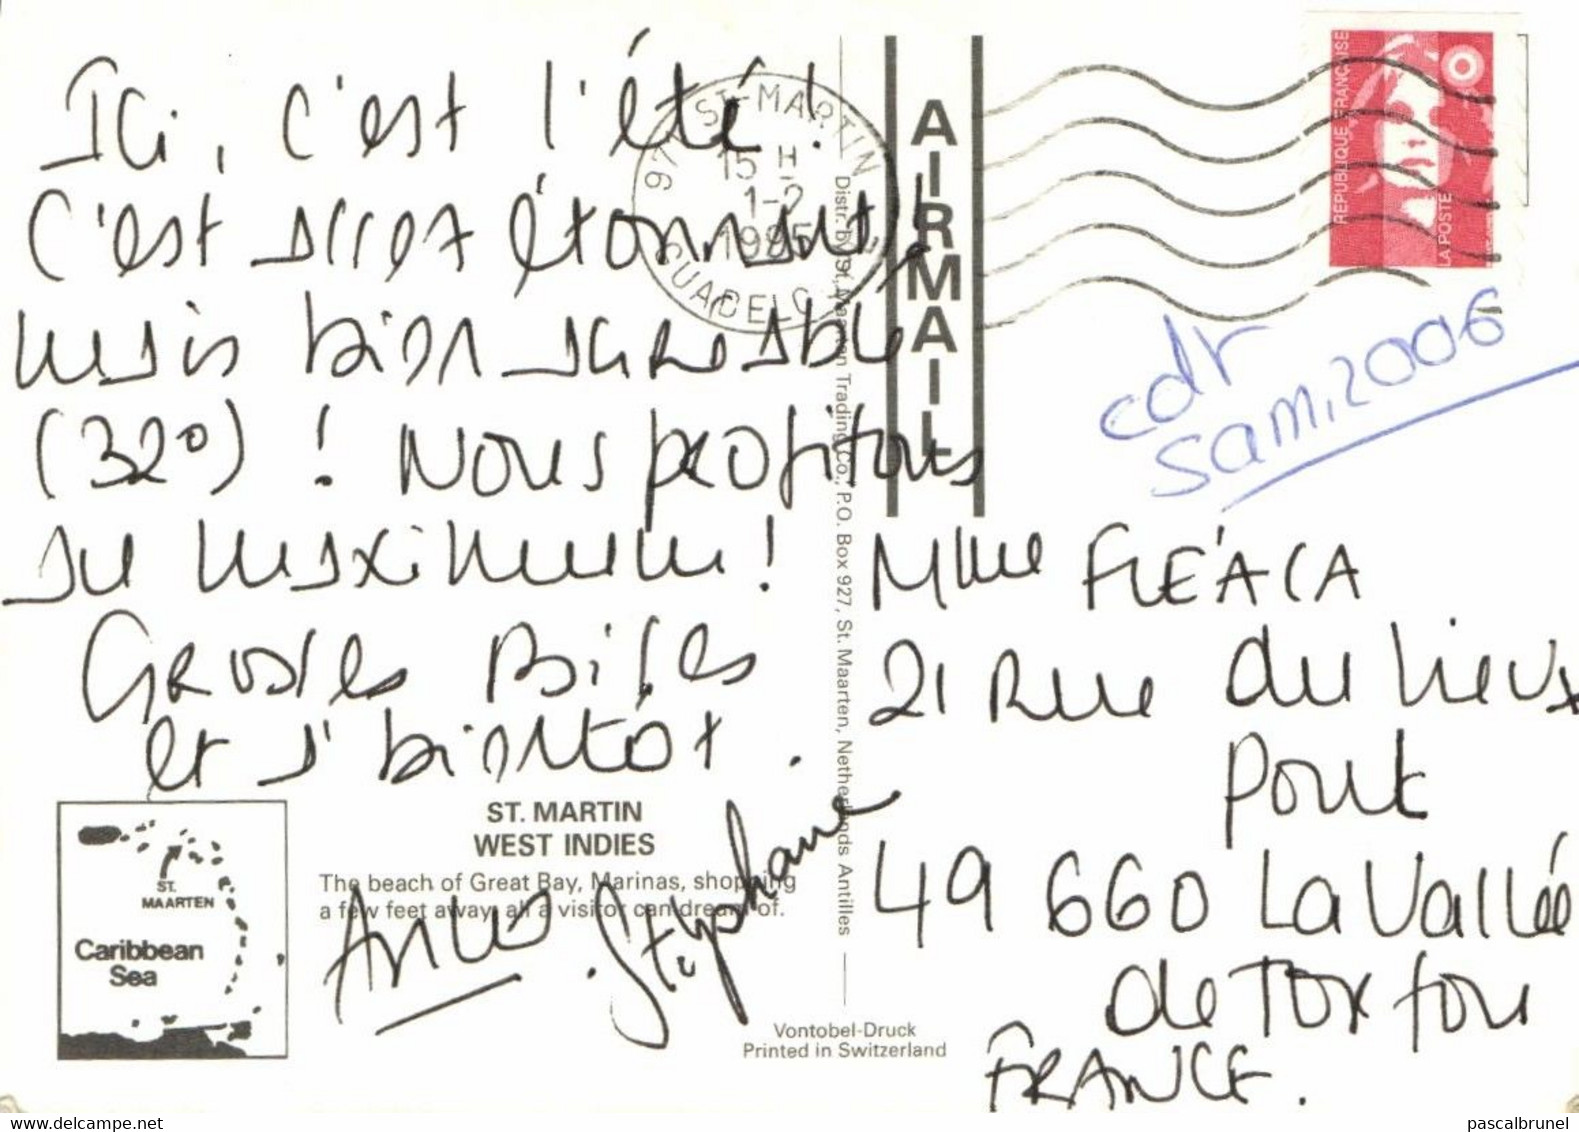 Ici, c'est l'été !
C'est assez étonnant,
mais bien agréable
(32°) ! Nous profitons
au maximum !
Grosses Bises
et à bientôt.
Stéphane
ST. MARTIN
WEST INDIES
The beach of Great Bay, Marinas, shopping
a few feet away, all a visitor can dream of.
ST.
MAARTEN
Caribbean
Sea
Vontobel-Druck
Printed in Switzerland
Distr. by St. Maarten Trading Co., P.O. Box 927, St. Maarten, Netherlands Antilles
ST-MARTIN
15 H
1-2
1995
GUADELOUPE
AIRMAIL
REPUBLIQUE FRANÇAISE
LA POSTE
cdr
Sam, 2006
Mme FLÉACA
21 Rue du Vieux
Pont
49 660 La Vallée
de Torfou
FRANCE.
pascalbrunel